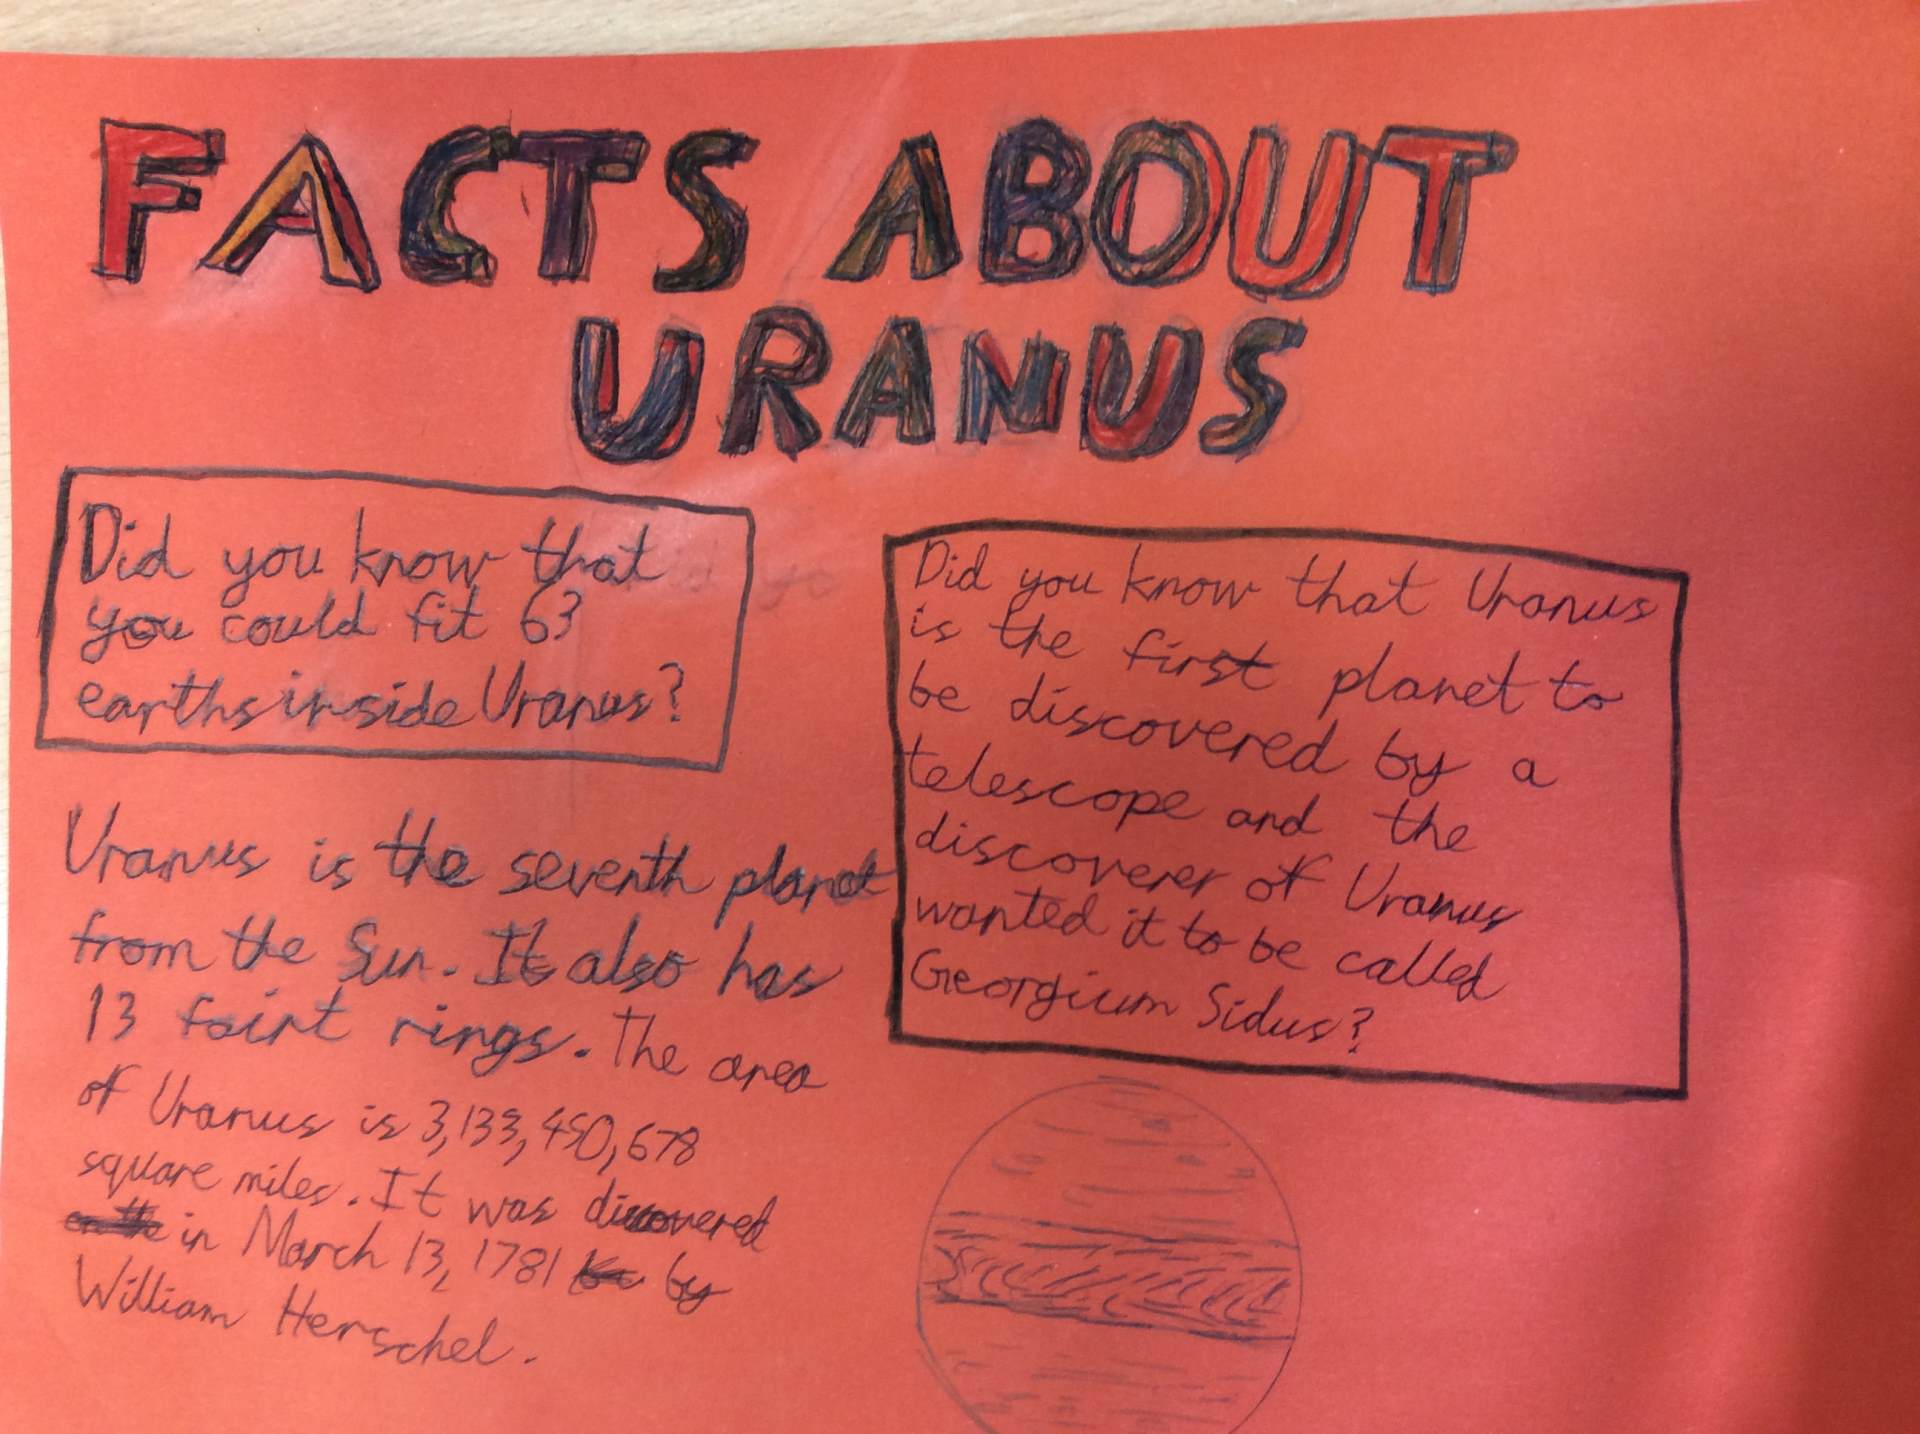 FACTS ABOUT
URANUS
Did you know that
you could fit 63
earths inside Uranus?
Did you know that Uranus
is the first planet to
be discovered by a
telescope and the
discoverer of Uranus
wanted it to be called
Georgium Sidus?
Uranus is the seventh planet
from the Sun. It also has
13 faint rings. The area
of Uranus is 3,133,450,678
square miles. It was discovered
in March 13, 1781 by
William Herschel.